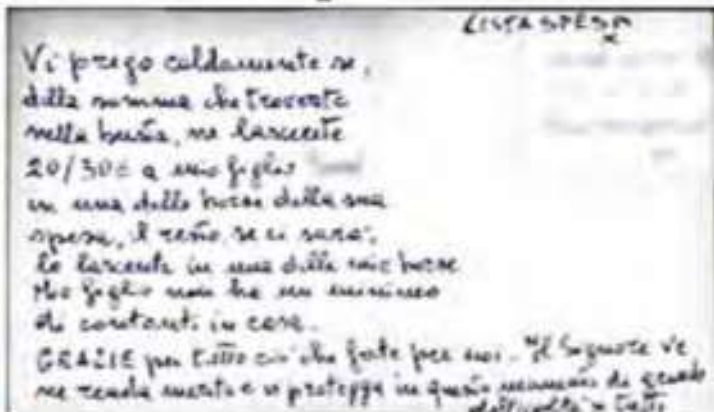 LISTA SPESA
x
Vi prego caldamente se,
dalla somma che trovate
nella busta, ne lascerete
20/30€ a mio figlio
in una delle borse della sua
spesa, il resto se ci sarà,
lo lascerete in una delle mie borse
Mio figlio non ha un minimo
di contanti in casa.
GRAZIE per tutto ciò che fate per noi. Il Signore ve
ne renda merito e vi protegga in questo momento di grande
difficoltà x tutti